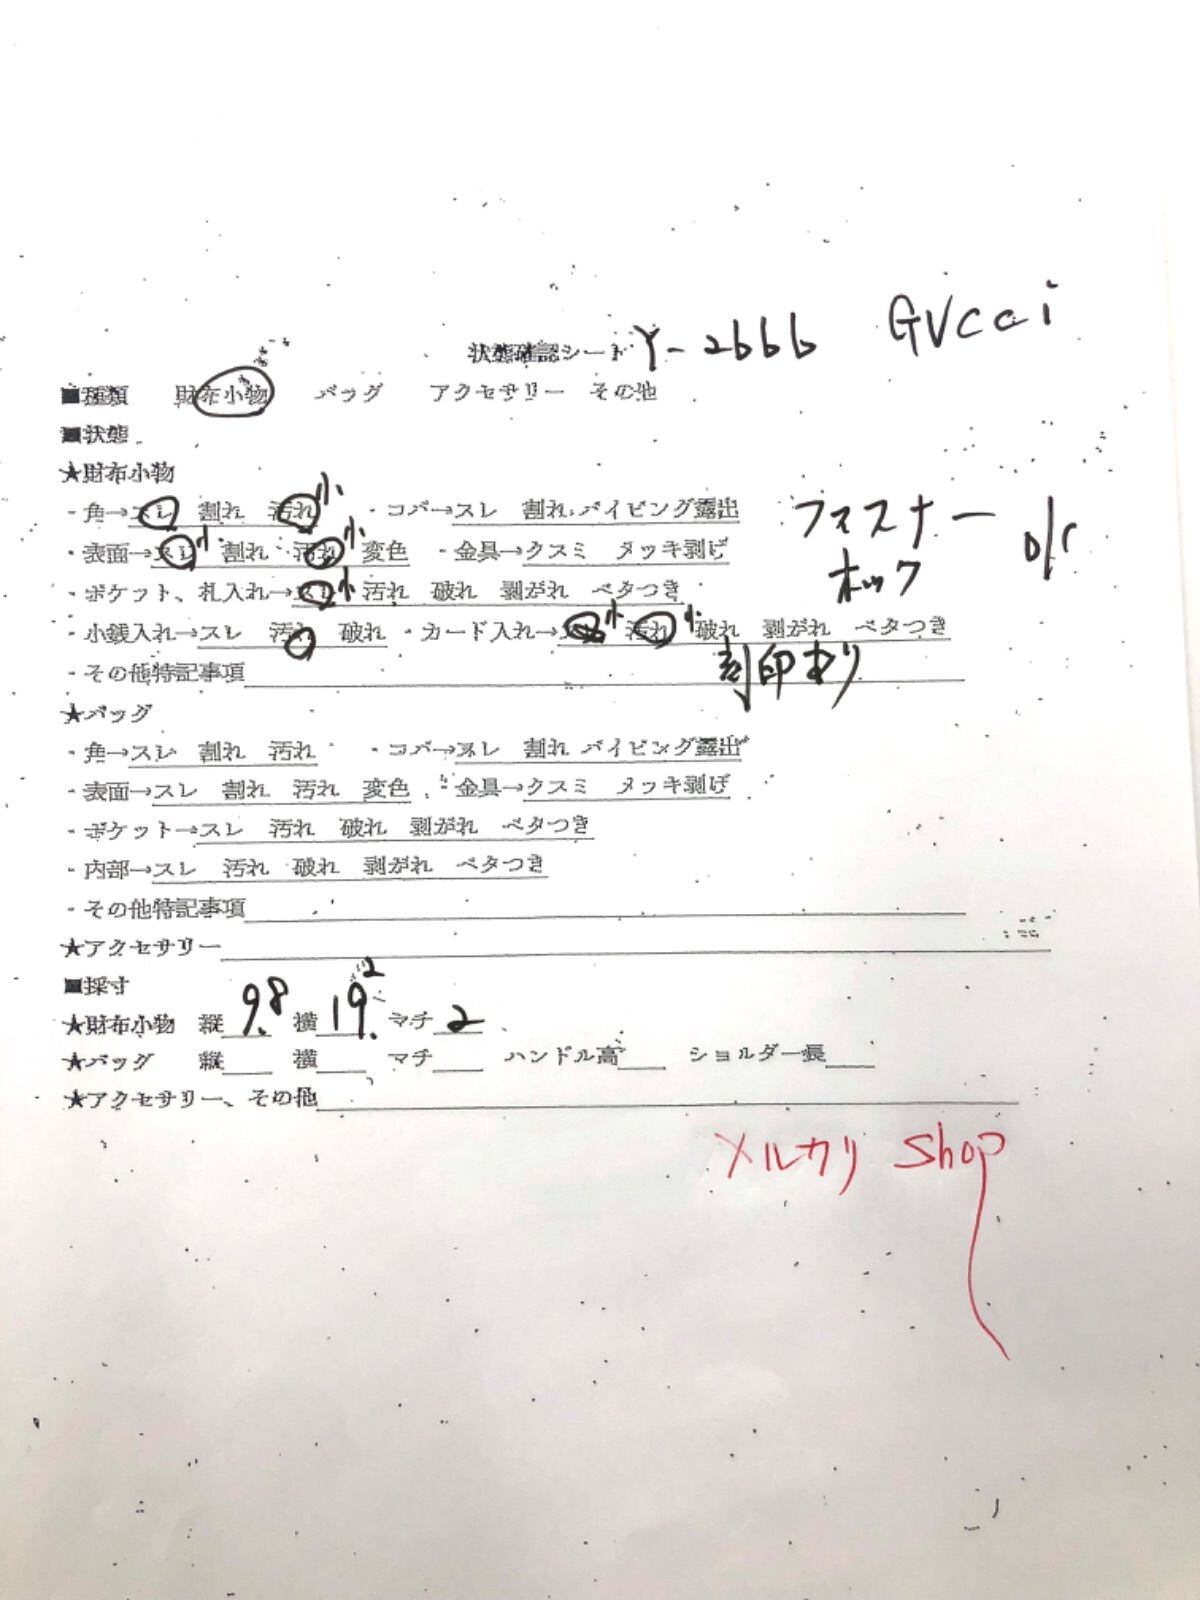 状態確認シート Y-2666 GVCCi
■種類 財布小物 バッグ アクセサリー その他
■状態
★財布小物
・角→スレ 割れ 汚れ 小 ・コバ→スレ 割れ パイピング露出 ファスナー
・表面→スレ 小 割れ 汚れ 小 変色 ・金具→クスミ メッキ剥げ ホック o/r
・ポケット、札入れ→スレ 小 汚れ 破れ 剥がれ ベタつき
・小銭入れ→スレ 汚れ 破れ ・カード入れ→スレ 小 汚れ 小 破れ 剥がれ ベタつき
・その他特記事項 刻印あり
★バッグ
・角→スレ 割れ 汚れ ・コバ→スレ 割れ パイピング露出
・表面→スレ 割れ 汚れ 変色 ・金具→クスミ メッキ剥げ
・ポケット→スレ 汚れ 破れ 剥がれ ベタつき
・内部→スレ 汚れ 破れ 剥がれ ベタつき
・その他特記事項
★アクセサリー
■採寸
★財布小物 縦 9.8 横 19.2 マチ 2
★バッグ 縦 横 マチ ハンドル高 ショルダー長
★アクセサリー、その他
メルカリ Shop